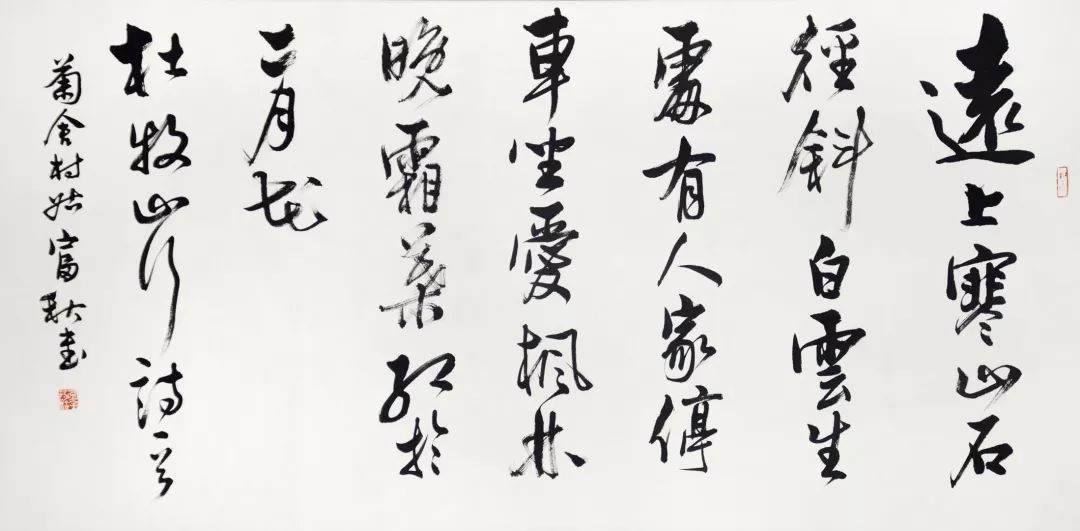 遠上寒山石
徑斜白雲生
處有人家停
車坐愛楓林
晚霜葉紅於
二月花
杜牧山行詩一首
菊舍村姑富書